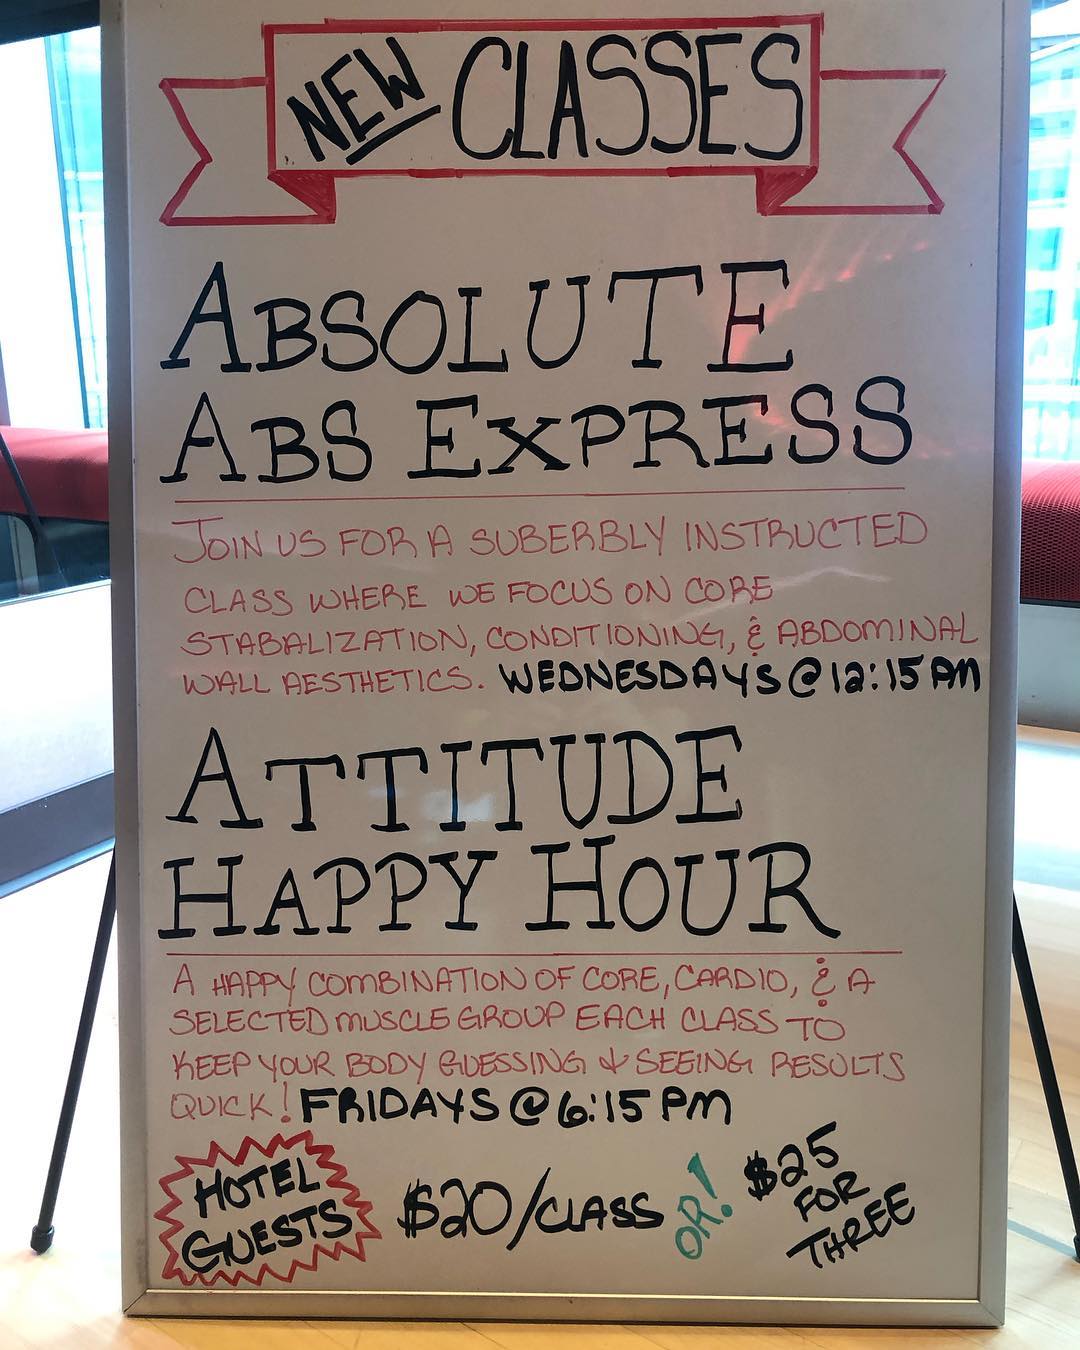 NEW CLASSES
ABSOLUTE
ABS EXPRESS
JOIN US FOR A SUBERBLY INSTRUCTED
CLASS WHERE WE FOCUS ON CORE
STABALIZATION, CONDITIONING, & ABDOMINAL
WALL AESTHETICS. WEDNESDAYS @ 12:15 AM
ATTITUDE
HAPPY HOUR
A HAPPY COMBINATION OF CORE, CARDIO, & A
SELECTED MUSCLE GROUP EACH CLASS TO
KEEP YOUR BODY GUESSING & SEEING RESULTS
QUICK! FRIDAYS @ 6:15 PM
HOTEL
GUESTS
$20/CLASS
OR!
$25
FOR
THREE